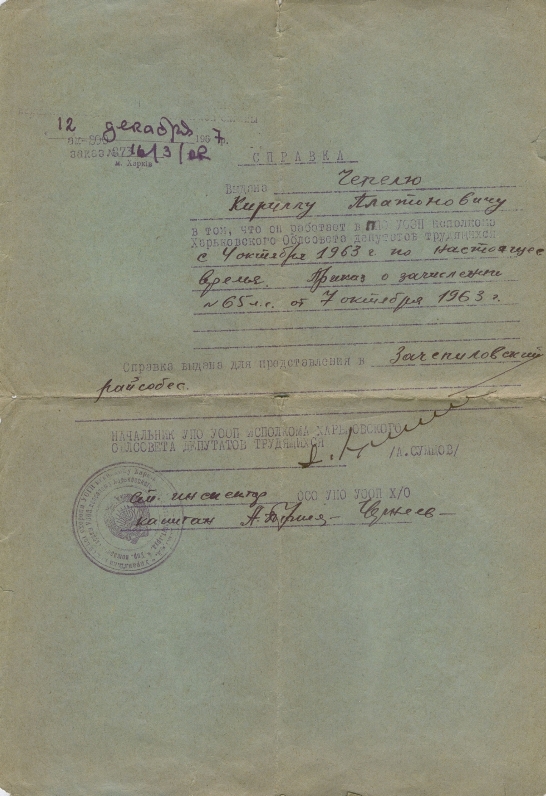 12 декабря 1967 г.
заказ 16/3/
м. Харків
СПРАВКА
Выдана Чепелю
Кириллу Платиновичу
в том, что он работает в УООП исполкома
Харьковского Облсовета депутатов трудящихся
с 4 октября 1963 г. по настоящее
время. Приказ о зачислении
№ 65 л.с. от 7 октября 1963 г.
Справка выдана для представления в Зачепиловский
райсобес.
НАЧАЛЬНИК УПО УООП ИСПОЛКОМА ХАРЬКОВСКОГО
ОБЛСОВЕТА ДЕПУТАТОВ ТРУДЯЩИХСЯ
/А.СУМЦОВ/
Ст. инспектор ОСО УПО УООП Х/О
капитан